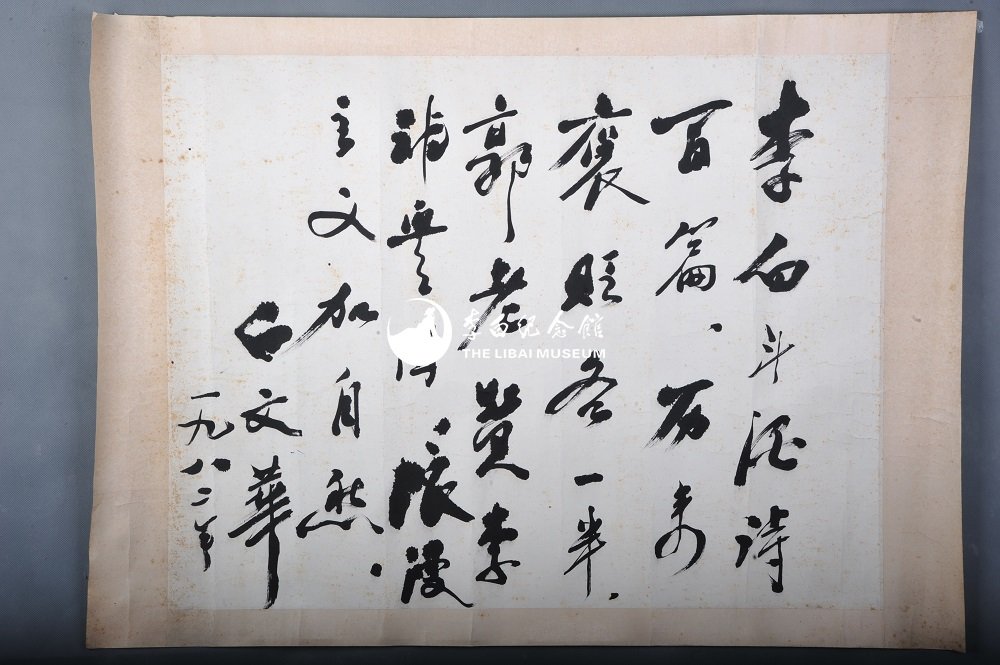 李白斗酒诗
百篇、历来
褒贬各一半.
郭老赞李
浪漫
主文加自然.
白文華
一九八二年
李白纪念館
THE LIBAI MUSEUM